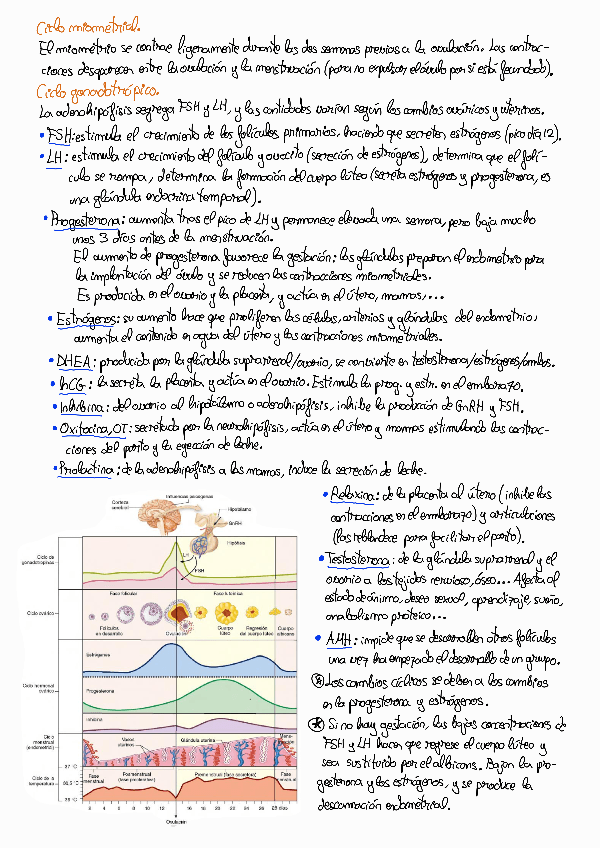 Ciclo miometrial.
El miométrio se contrae ligeramente durante las dos semanas previas a la ovulación. Las contrac-
ciones desaparecen entre la ovulación y la menstruación (para no expulsar el óvulo por si está fecundado).
Ciclo gonadotrópico.
La adenohipófisis segrega FSH y LH, y las cantidades varían según los cambios ováricos y uterinos.
• FSH: estimula el crecimiento de los folículos primarios, haciendo que secreten estrógenos (pico día 12).
• LH: estimula el crecimiento del folículo y ovocito (secreción de estrógenos), determina que el folí-
culo se rompa, determina la formación del cuerpo lúteo (secreta estrógenos y progesterona, es
una glándula endocrina temporal).
• Progesterona: aumenta tras el pico de LH y permanece elevada una semana, pero baja mucho
unos 3 días antes de la menstruación.
El aumento de progesterona favorece la gestación: las glándulas preparan el endometrio para
la implantación del óvulo y se reducen las contracciones miometriales.
Es producida en el ovario y la placenta, y actúa en el útero, mamas,...
• Estrógenos: su aumento hace que proliferen las células, arterias y glándulas del endometrio,
aumenta el contenido en agua del útero y las contracciones miometriales.
• DHEA: producida por la glándula suprarrenal/ovario, se convierte en testosterona/estrógenos/ambos.
• hCG: la secreta la placenta y actúa en el ovario. Estimula la prog. y estr. en el embarazo.
• Inhibina: del ovario al hipotálamo o adenohipófisis, inhibe la producción de GnRH y FSH.
• Oxitocina, OT: secretada por la neurohipófisis, actúa en el útero y mamas estimulando las contrac-
ciones del parto y la eyección de leche.
• Prolactina: de la adenohipófisis a las mamas, induce la secreción de leche.
• Relaxina: de la placenta al útero (inhibe las
contracciones en el embarazo) y articulaciones
(las reblandece para facilitar el parto).
• Testosterona: de la glándula suprarrenal y el
ovario a los tejidos nervioso, óseo... Afecta al
estado de ánimo, deseo sexual, aprendizaje, sueño,
anabolismo proteico...
• AMH: impide que se desarrollen otros folículos
una vez ha empezado el desarrollo de un grupo.
Los cambios cíclicos se deben a los cambios
en la progesterona y estrógenos.
Si no hay gestación, las bajas concentraciones de
FSH y LH hacen que regrese el cuerpo lúteo y
sea sustituido por el albicans. Bajan la pro-
gesterona y los estrógenos, y se produce la
descamación endometrial.
Influencias psicógenas
Corteza
cerebral
Hipotálamo
GnRH
Hipófisis
LH
FSH
Ciclo de
gonadotropinas
Fase folicular
Fase luteínica
Ciclo ovárico
Folículos
en desarrollo
Ovulación
Cuerpo
lúteo
Regresión
del cuerpo lúteo
Cuerpo
albicans
Estrógenos
Ciclo hormonal
ovárico
Progesterona
Inhibina
Ciclo
menstrual
(endometrio)
Vasos
uterinos
Glándula uterina
Mens-
truación
Ciclo de la
temperatura
37 °C
36.5 °C
36 °C
Fase
menstrual
Posmenstrual
(fase proliferativa)
Premenstrual (fase secretora)
Fase
menstrual
2 4 6 8 10 12 14 16 18 20 22 24 26 28 días
Ovulación